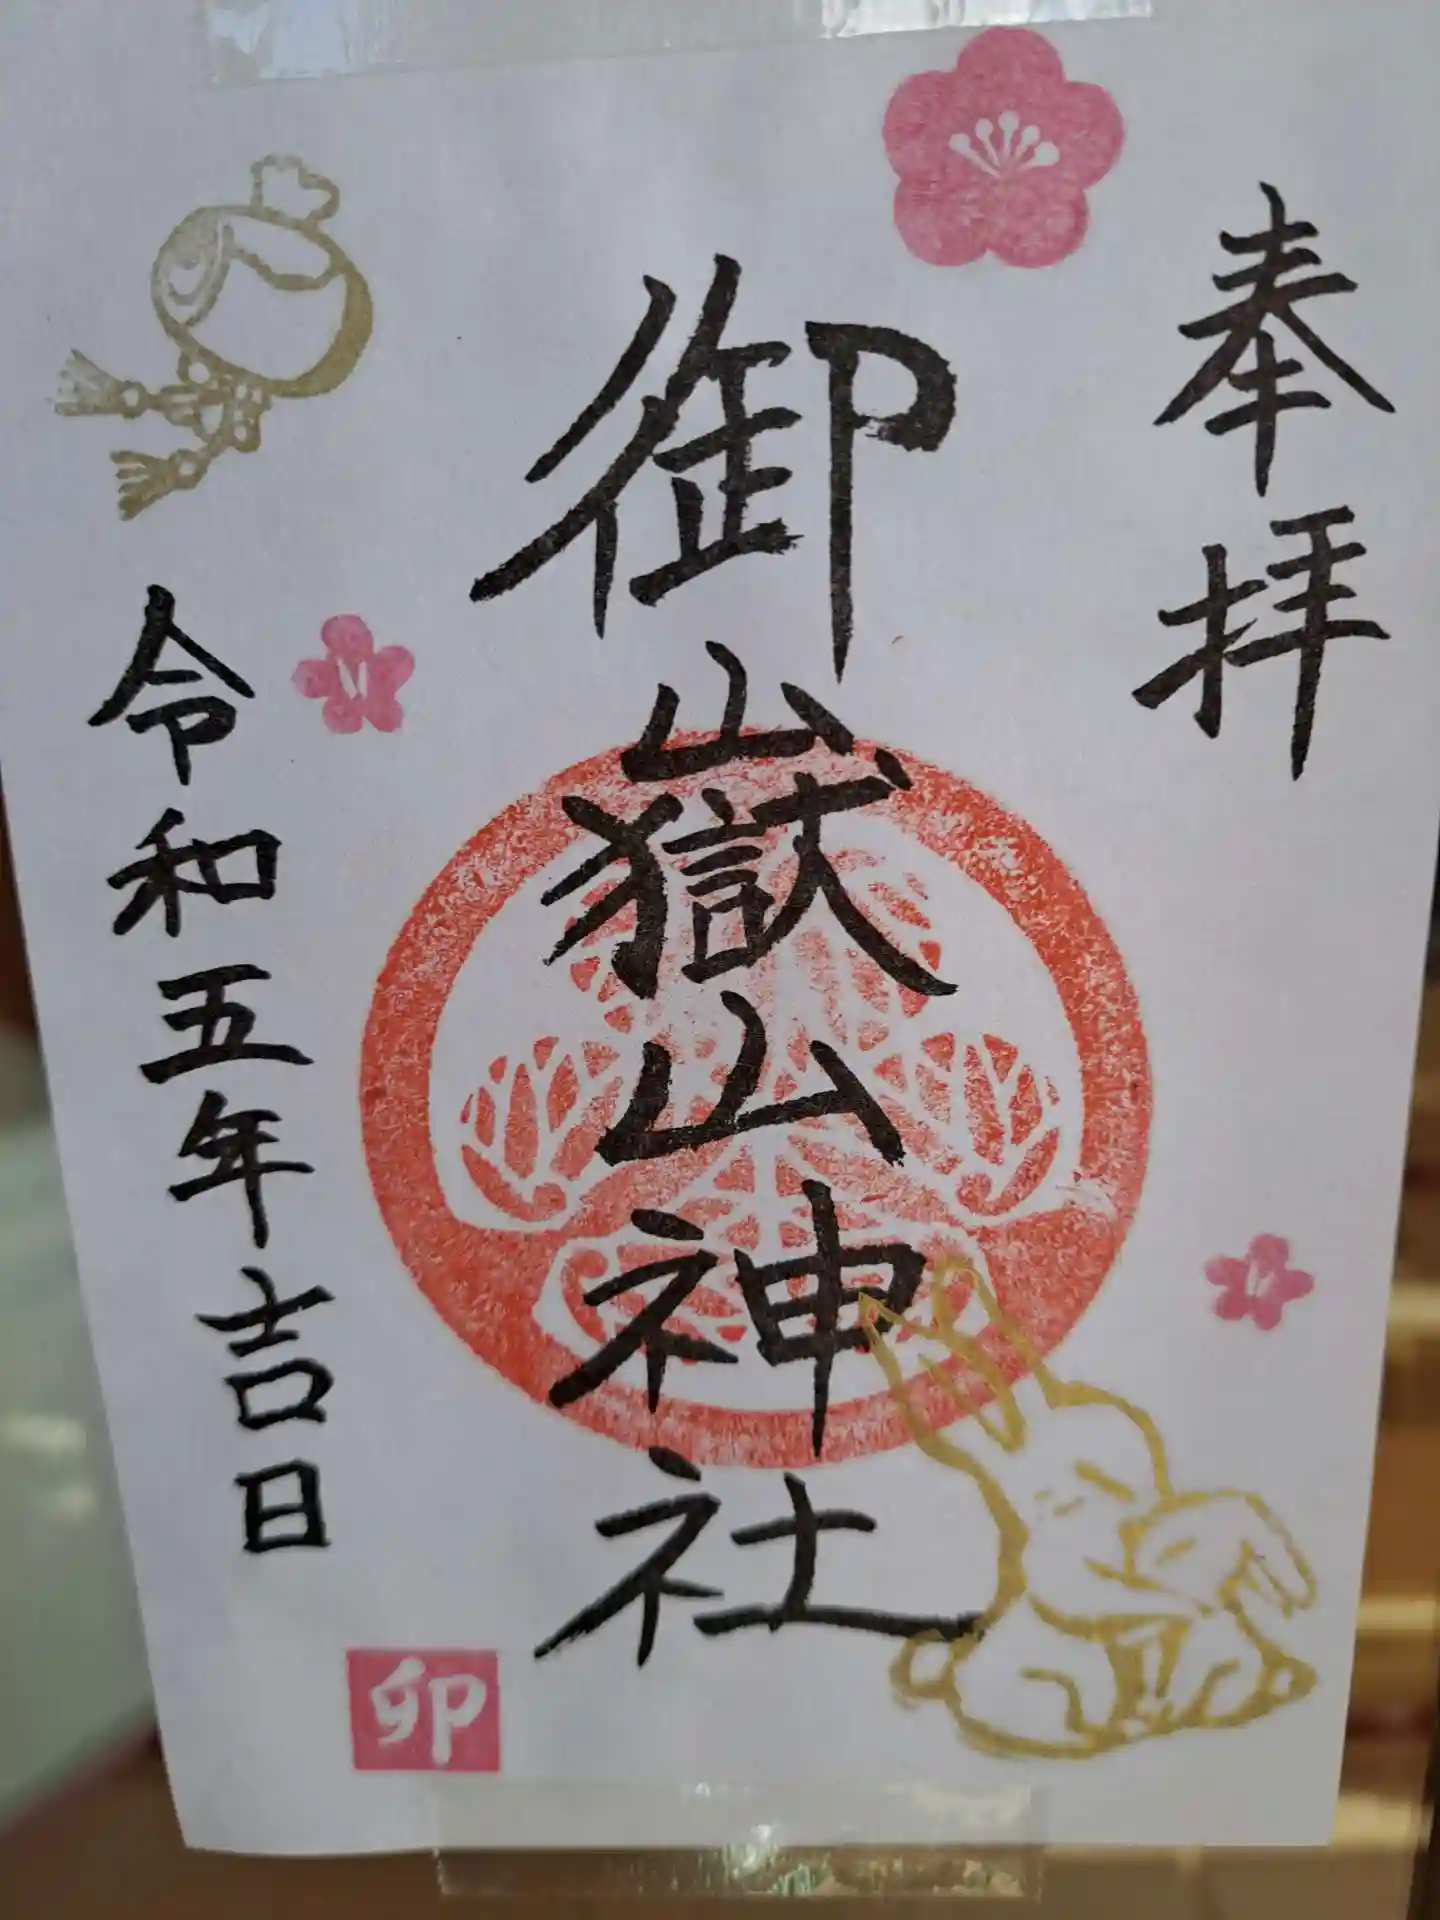 奉拝
御嶽山神社
令和五年吉日
卯